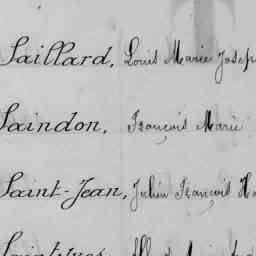 Saillard, Louis Marie Josep
Saindon, François Marie
Saint-Jean, Julien François